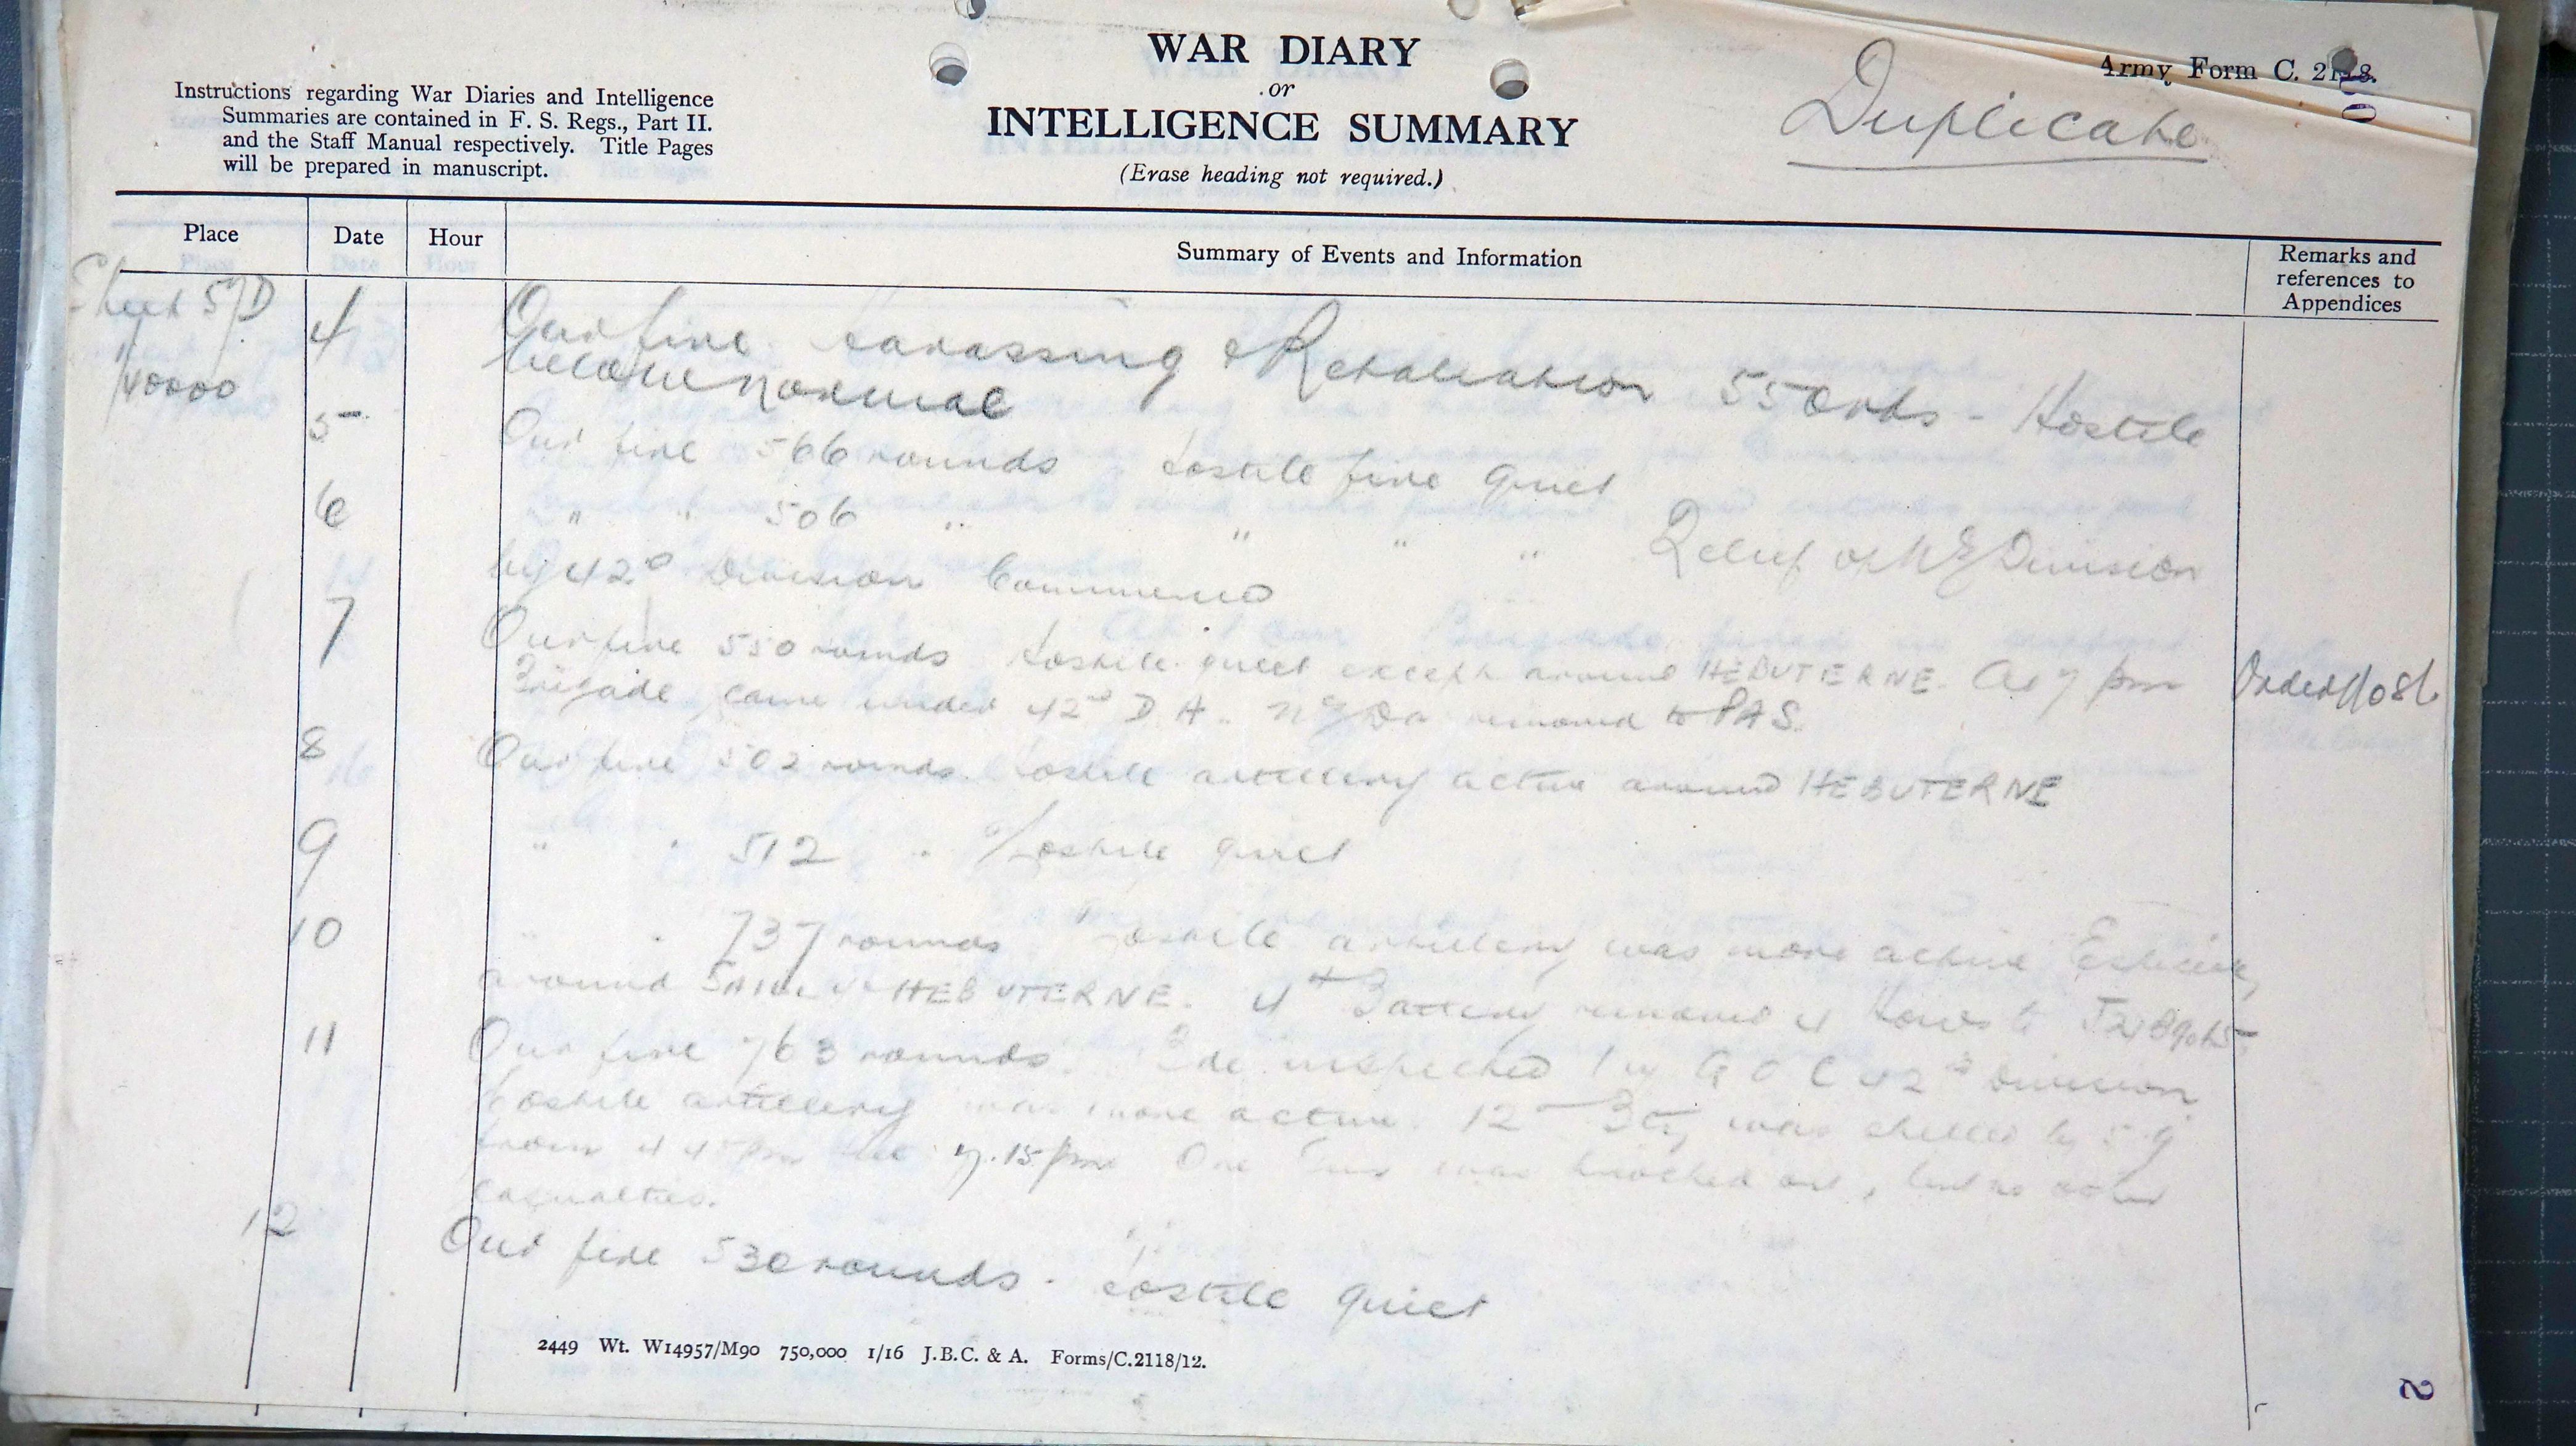 WAR DIARY
or
INTELLIGENCE SUMMARY
(Erase heading not required.)
Army Form C. 2118.
Duplicate
Instructions regarding War Diaries and Intelligence
Summaries are contained in F. S. Regs., Part II.
and the Staff Manual respectively. Title Pages
will be prepared in manuscript.
Place Date Hour Summary of Events and Information Remarks and
references to
Appendices
Sheet 57D
1/40000
4 Our fire harassing & Retaliation 550 rds - Hostile
below normal
5 Our fire 566 rounds hostile fire quiet
6 " " 506 " " " " Relief of NZ Division
by 42d Division Commenced
7 Our fire 550 rounds Hostile quiet except around HEBUTERNE. At 7 pm Order 108
Brigade came under 42nd D A. NZ DA removed to PAS.
8 Our fire 502 rounds. hostile artillery active around HEBUTERNE
9 " " 512 " Hostile quiet
10 " " 737 rounds Hostile artillery was more active Especially
around HEBUTERNE. 4th Battery removed 4 Hows to
11 Our fire 763 rounds. Bde inspected by G O C 42d Division
hostile artillery was more active. 12th Bty was shelled by 5.9
from 4 45 pm till 7.15 pm One Gun was knocked out, but no other
casualties.
12 Our fire 530 rounds. hostile quiet
2449 Wt. W14957/M90 750,000 1/16 J.B.C. & A. Forms/C.2118/12.
2